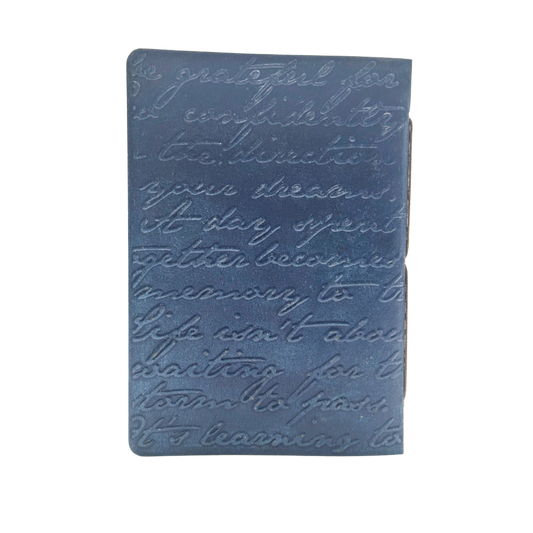 be grateful for
confidently
the direction
your dreams.
A day spent
together becomes
memory to tr
Life isn't abou
waiting for t
storm to pass.
It's learning to